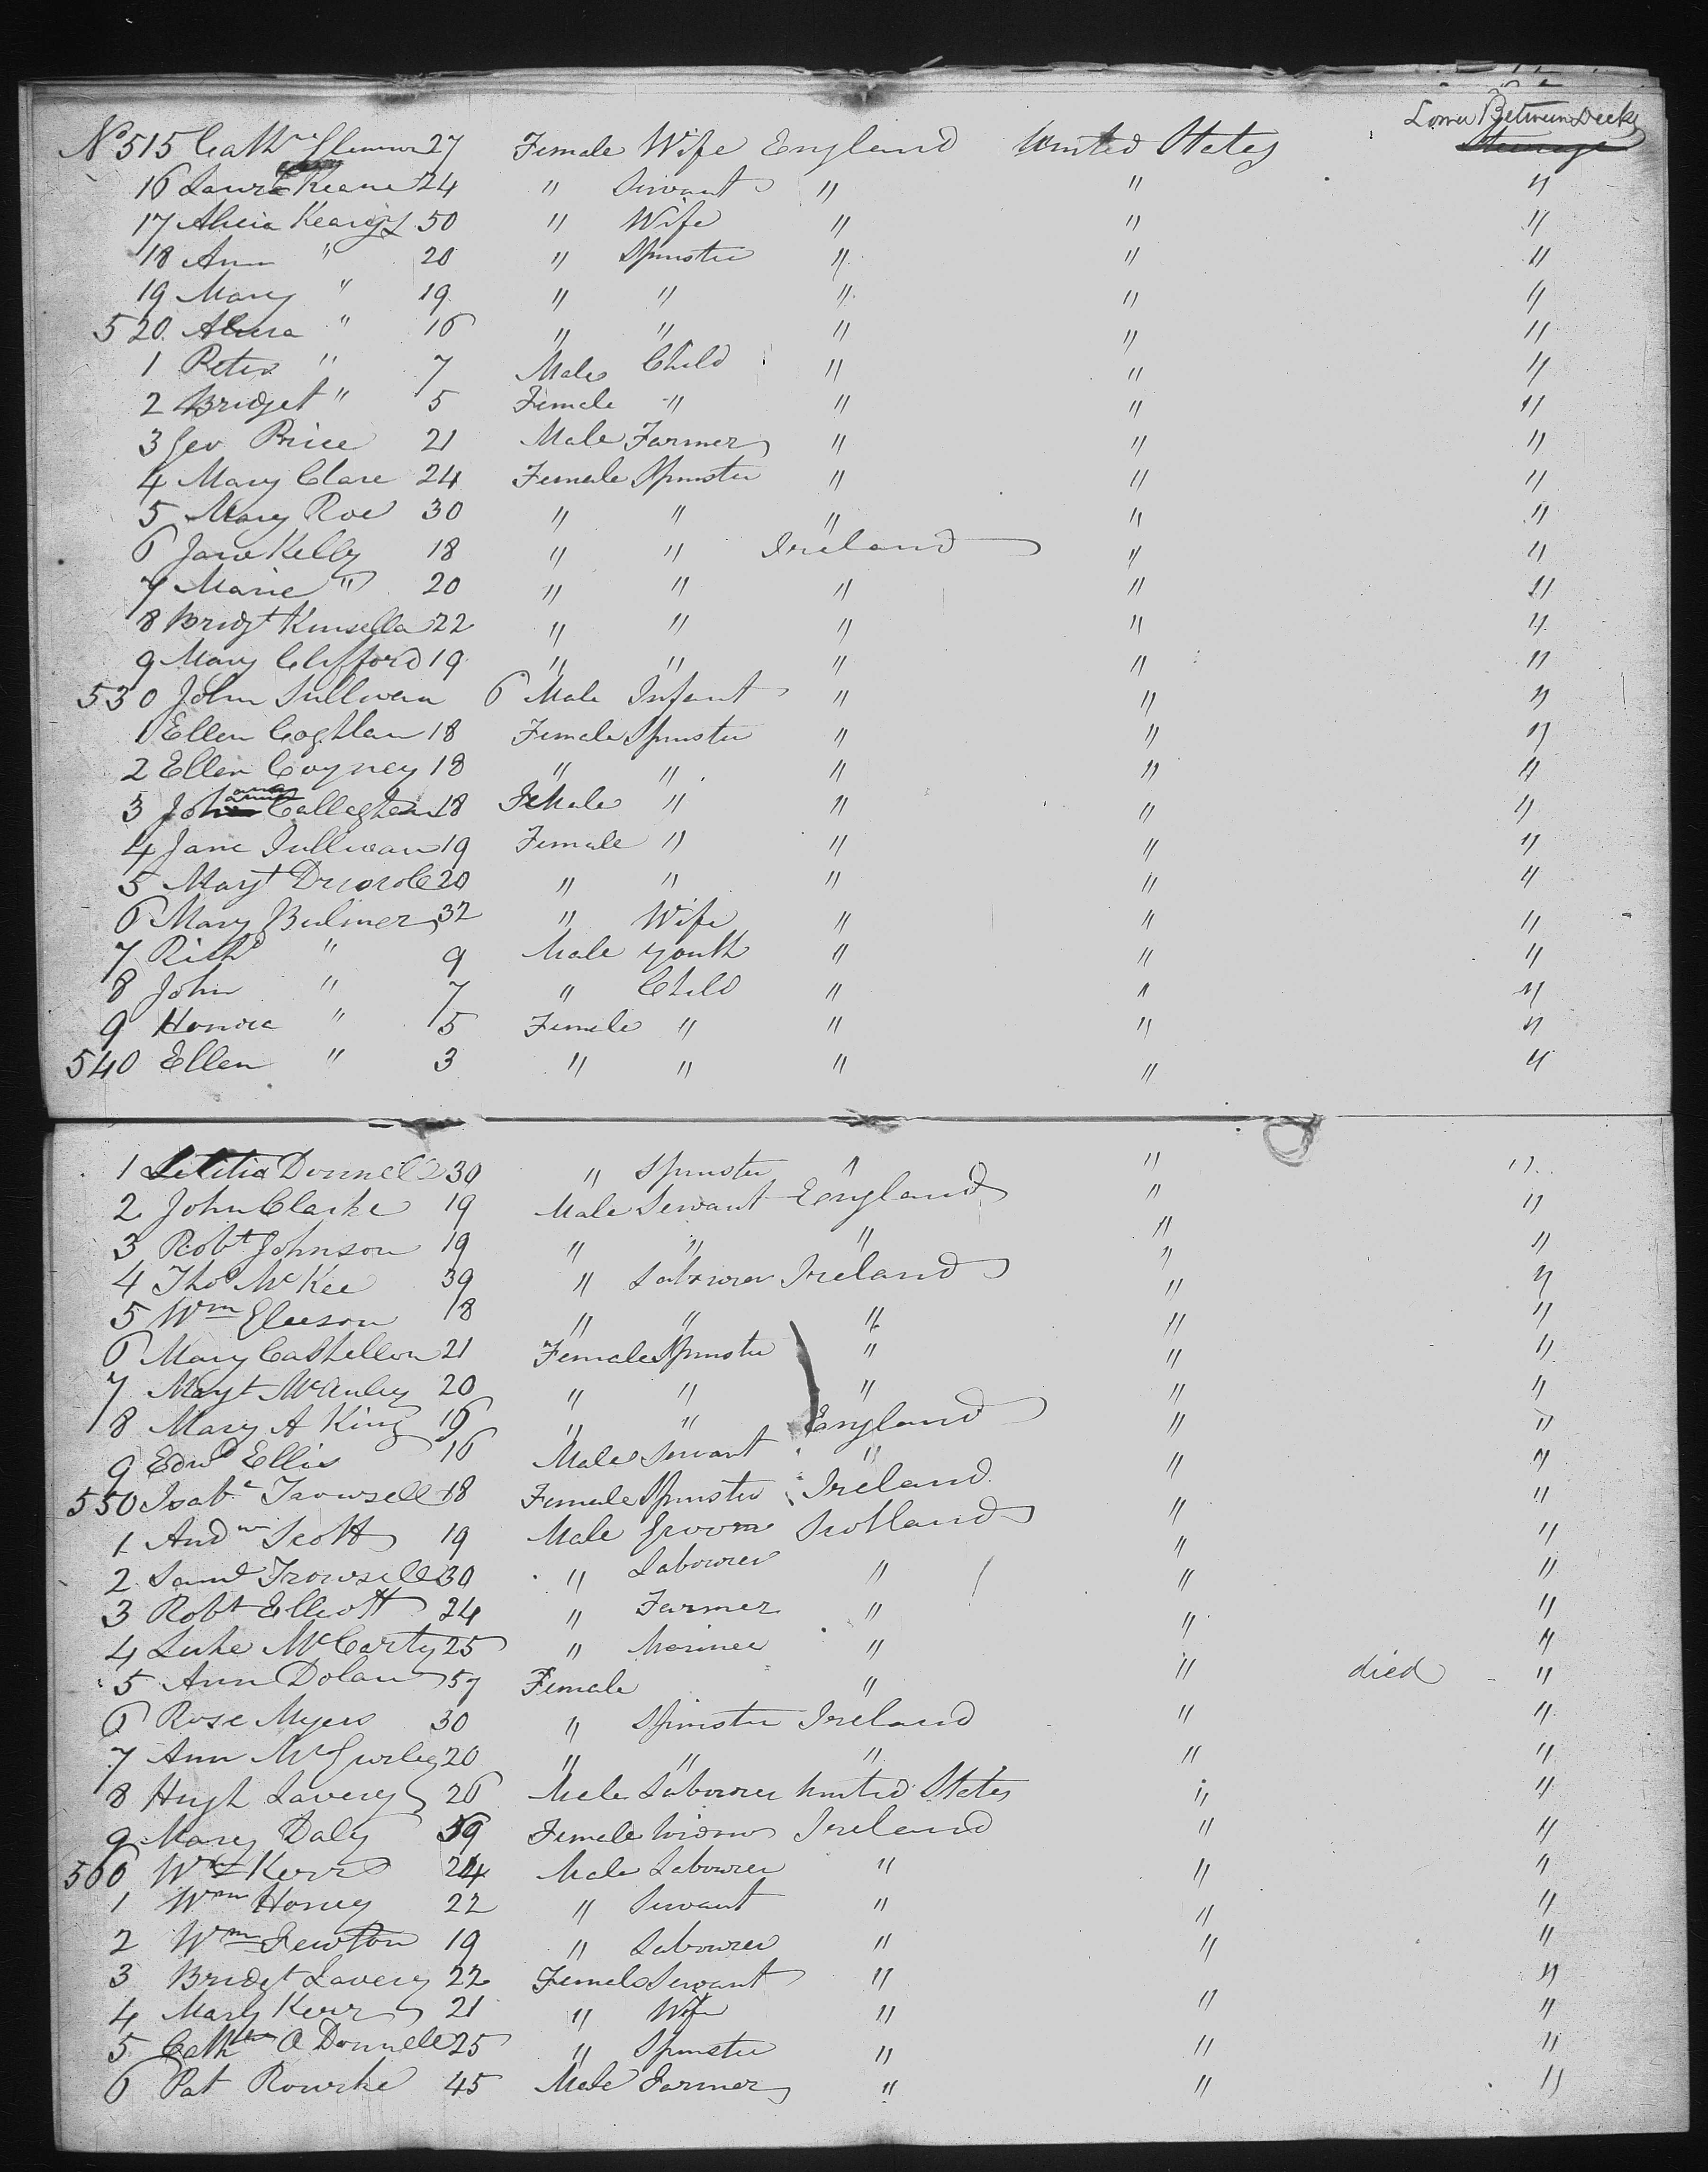 Lower Between Decks
No 515 Cathne 27 Female Wife England United States Steerage
16 Laura Keane 24 " Servant " " "
17 Alicia Kearney 50 " Wife " " "
18 Ann " 20 " Spinster " " "
19 Mary " 19 " " " " "
520 Alicia " 16 " " " " "
1 Peter " 7 Male Child " " "
2 Bridget " 5 Female " " " "
3 Geo Price 21 Male Farmer " " "
4 Mary Clare 24 Female Spinster " " "
5 Mary Roe 30 " " " " "
6 Jane Kelly 18 " " Ireland " "
7 Marie " 20 " " " " "
8 Bridgt Kinsella 22 " " " " "
9 Mary Clifford 19 " " " " "
530 John Sullivan 6 Male Infant " " "
1 Ellen Coghlan 18 Female Spinster " " "
2 Ellen Coyney 18 " " " " "
3 Johanna Callaghan 18 Female " " " "
4 Jane Sullivan 19 Female " " " "
5 Margt 20 " " " " "
6 Mary Bulmer 32 " Wife " " "
7 Richd " 9 Male youth " " "
8 John " 7 " Child " " "
9 Honora " 5 Female " " " "
540 Ellen " 3 " " " " "
1 Letitia Donnell 30 " Spinster " " "
2 John Clarke 19 Male Servant England " "
3 Robt Johnson 19 " " " " "
4 Thos McKee 39 " Labourer Ireland " "
5 Wm Gleeson 18 " " " " "
6 Mary Cashellon 21 Female Spinster " " "
7 Margt McAuley 20 " " " " "
8 Mary A King 19 " " England " "
9 Edwd Ellis 16 Male Servant " " "
550 Isabe Trowsell 18 Female Spinster Ireland "
1 Andw Scott 19 Male Groom Scotland " "
2 Saml Trowsell 30 " Labourer " " "
3 Robt Elliott 24 " Farmer " " "
4 Luke McCarty 25 " Mariner " " "
5 Ann Dolan 57 Female " " died "
6 Rose Myers 30 " Spinster Ireland " "
7 Ann McGurley 20 " " " " "
8 Hugh Lavery 26 Male Labourer United States " "
9 Mary Daly 59 Female Widow Ireland " "
560 Wm Kerr 24 Male Labourer " " "
1 Wm Honey 22 " Servant " " "
2 Wm Fewton 19 " Labourer " " "
3 Bridgt Lavery 22 Female Servant " "
4 Mary Kerr 21 " Wife " " "
5 Cathne O Donnell 25 " Spinster " " "
6 Pat Rourke 45 Male Farmer " " "